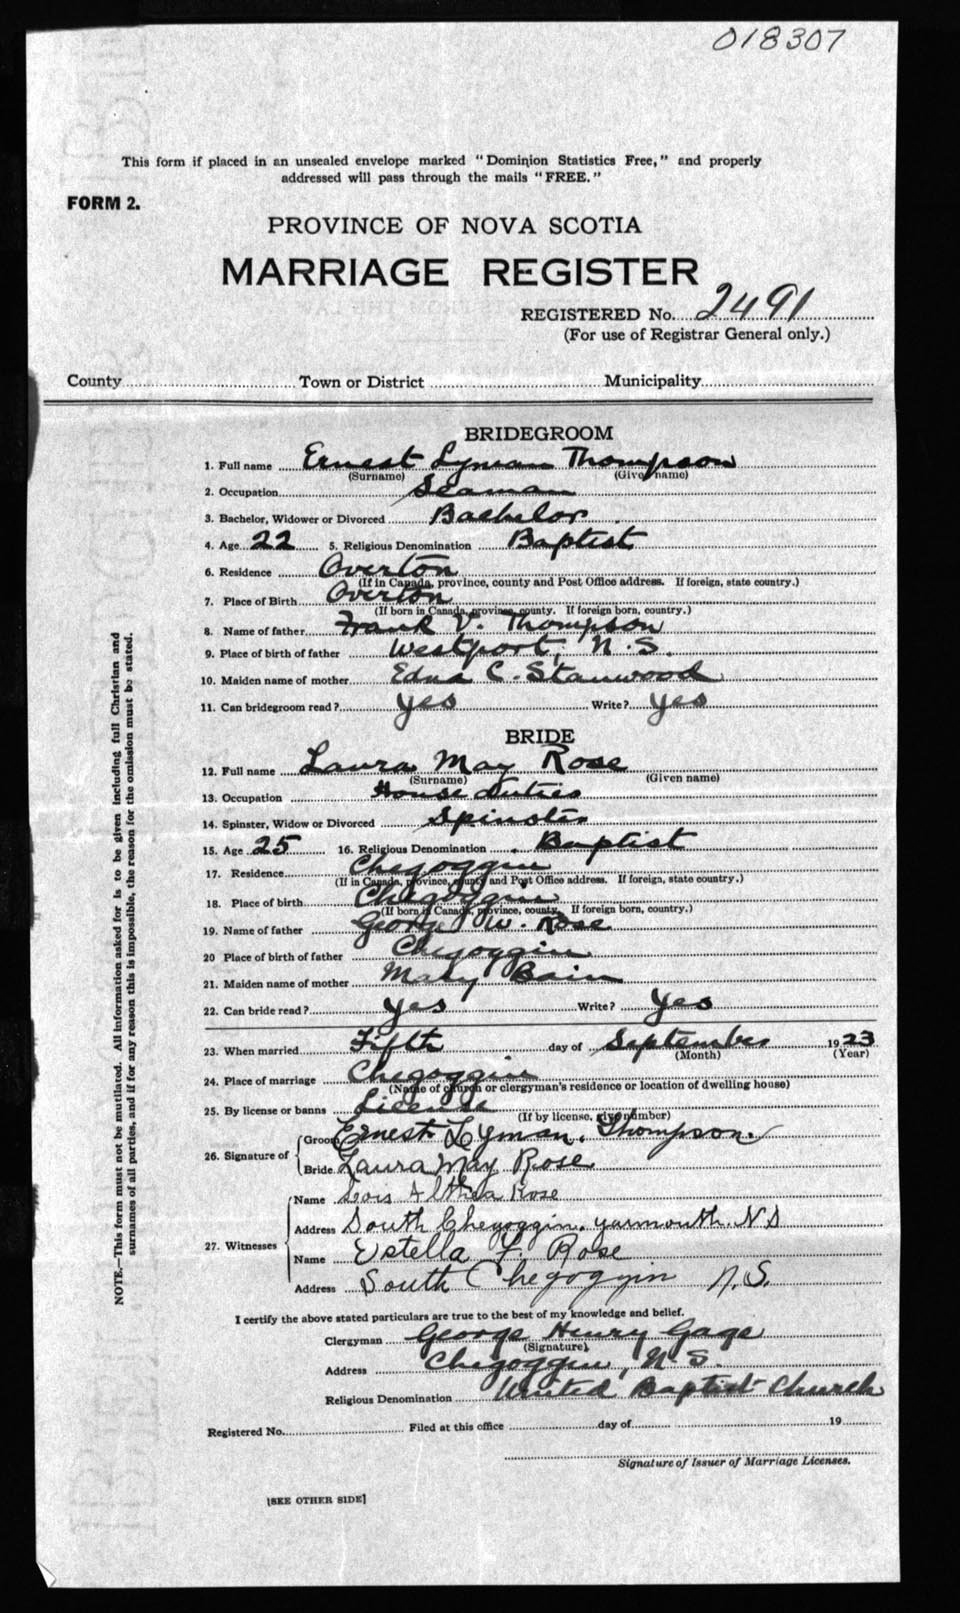 018307
This form if placed in an unsealed envelope marked "Dominion Statistics Free," and properly
addressed will pass through the mails "FREE."
FORM 2.
PROVINCE OF NOVA SCOTIA
MARRIAGE REGISTER
REGISTERED No. 2491
(For use of Registrar General only.)
County Town or District Municipality
BRIDEGROOM
1. Full name Ernest Lyman Thompson
(Surname) (Given name)
2. Occupation Seaman
3. Bachelor, Widower or Divorced Bachelor
4. Age 22 5. Religious Denomination Baptist
6. Residence Overton
(If in Canada, province, county and Post Office address. If foreign, state country.)
7. Place of Birth Overton
(If born in Canada, province, county. If foreign born, country.)
8. Name of father Frank V. Thompson
9. Place of birth of father Westport, N.S.
10. Maiden name of mother Edna C. Stanwood
11. Can bridegroom read? yes Write? yes
BRIDE
12. Full name Laura May Rose
(Surname) (Given name)
13. Occupation House Duties
14. Spinster, Widow or Divorced Spinster
15. Age 25 16. Religious Denomination Baptist
17. Residence Chegoggin
(If in Canada, province, county and Post Office address. If foreign, state country.)
18. Place of birth Chegoggin
(If born in Canada, province, county. If foreign born, country.)
19. Name of father George W. Rose
20 Place of birth of father Chegoggin
21. Maiden name of mother Mary Bain
22. Can bride read? yes Write? yes
23. When married Fifth day of September 1923
(Month) (Year)
24. Place of marriage Chegoggin
(Name of church or clergyman's residence or location of dwelling house)
25. By license or banns License
(If by license, give number)
26. Signature of Groom Ernest Lyman Thompson.
Bride Laura May Rose
27. Witnesses Name Lois Althea Rose
Address South Chegoggin, Yarmouth. N S
Name Estella F. Rose
Address South Chegoggin N.S.
I certify the above stated particulars are true to the best of my knowledge and belief.
Clergyman George Henry Gage
(Signature)
Address Chegoggin, N.S.
Religious Denomination United Baptist Church
Registered No. Filed at this office day of 19
Signature of Issuer of Marriage Licenses.
[SEE OTHER SIDE]
NOTE.—This form must not be mutilated. All information asked for is to be given including full Christian and
surnames of all parties, and if for any reason this is impossible, the reason for the omission must be stated.